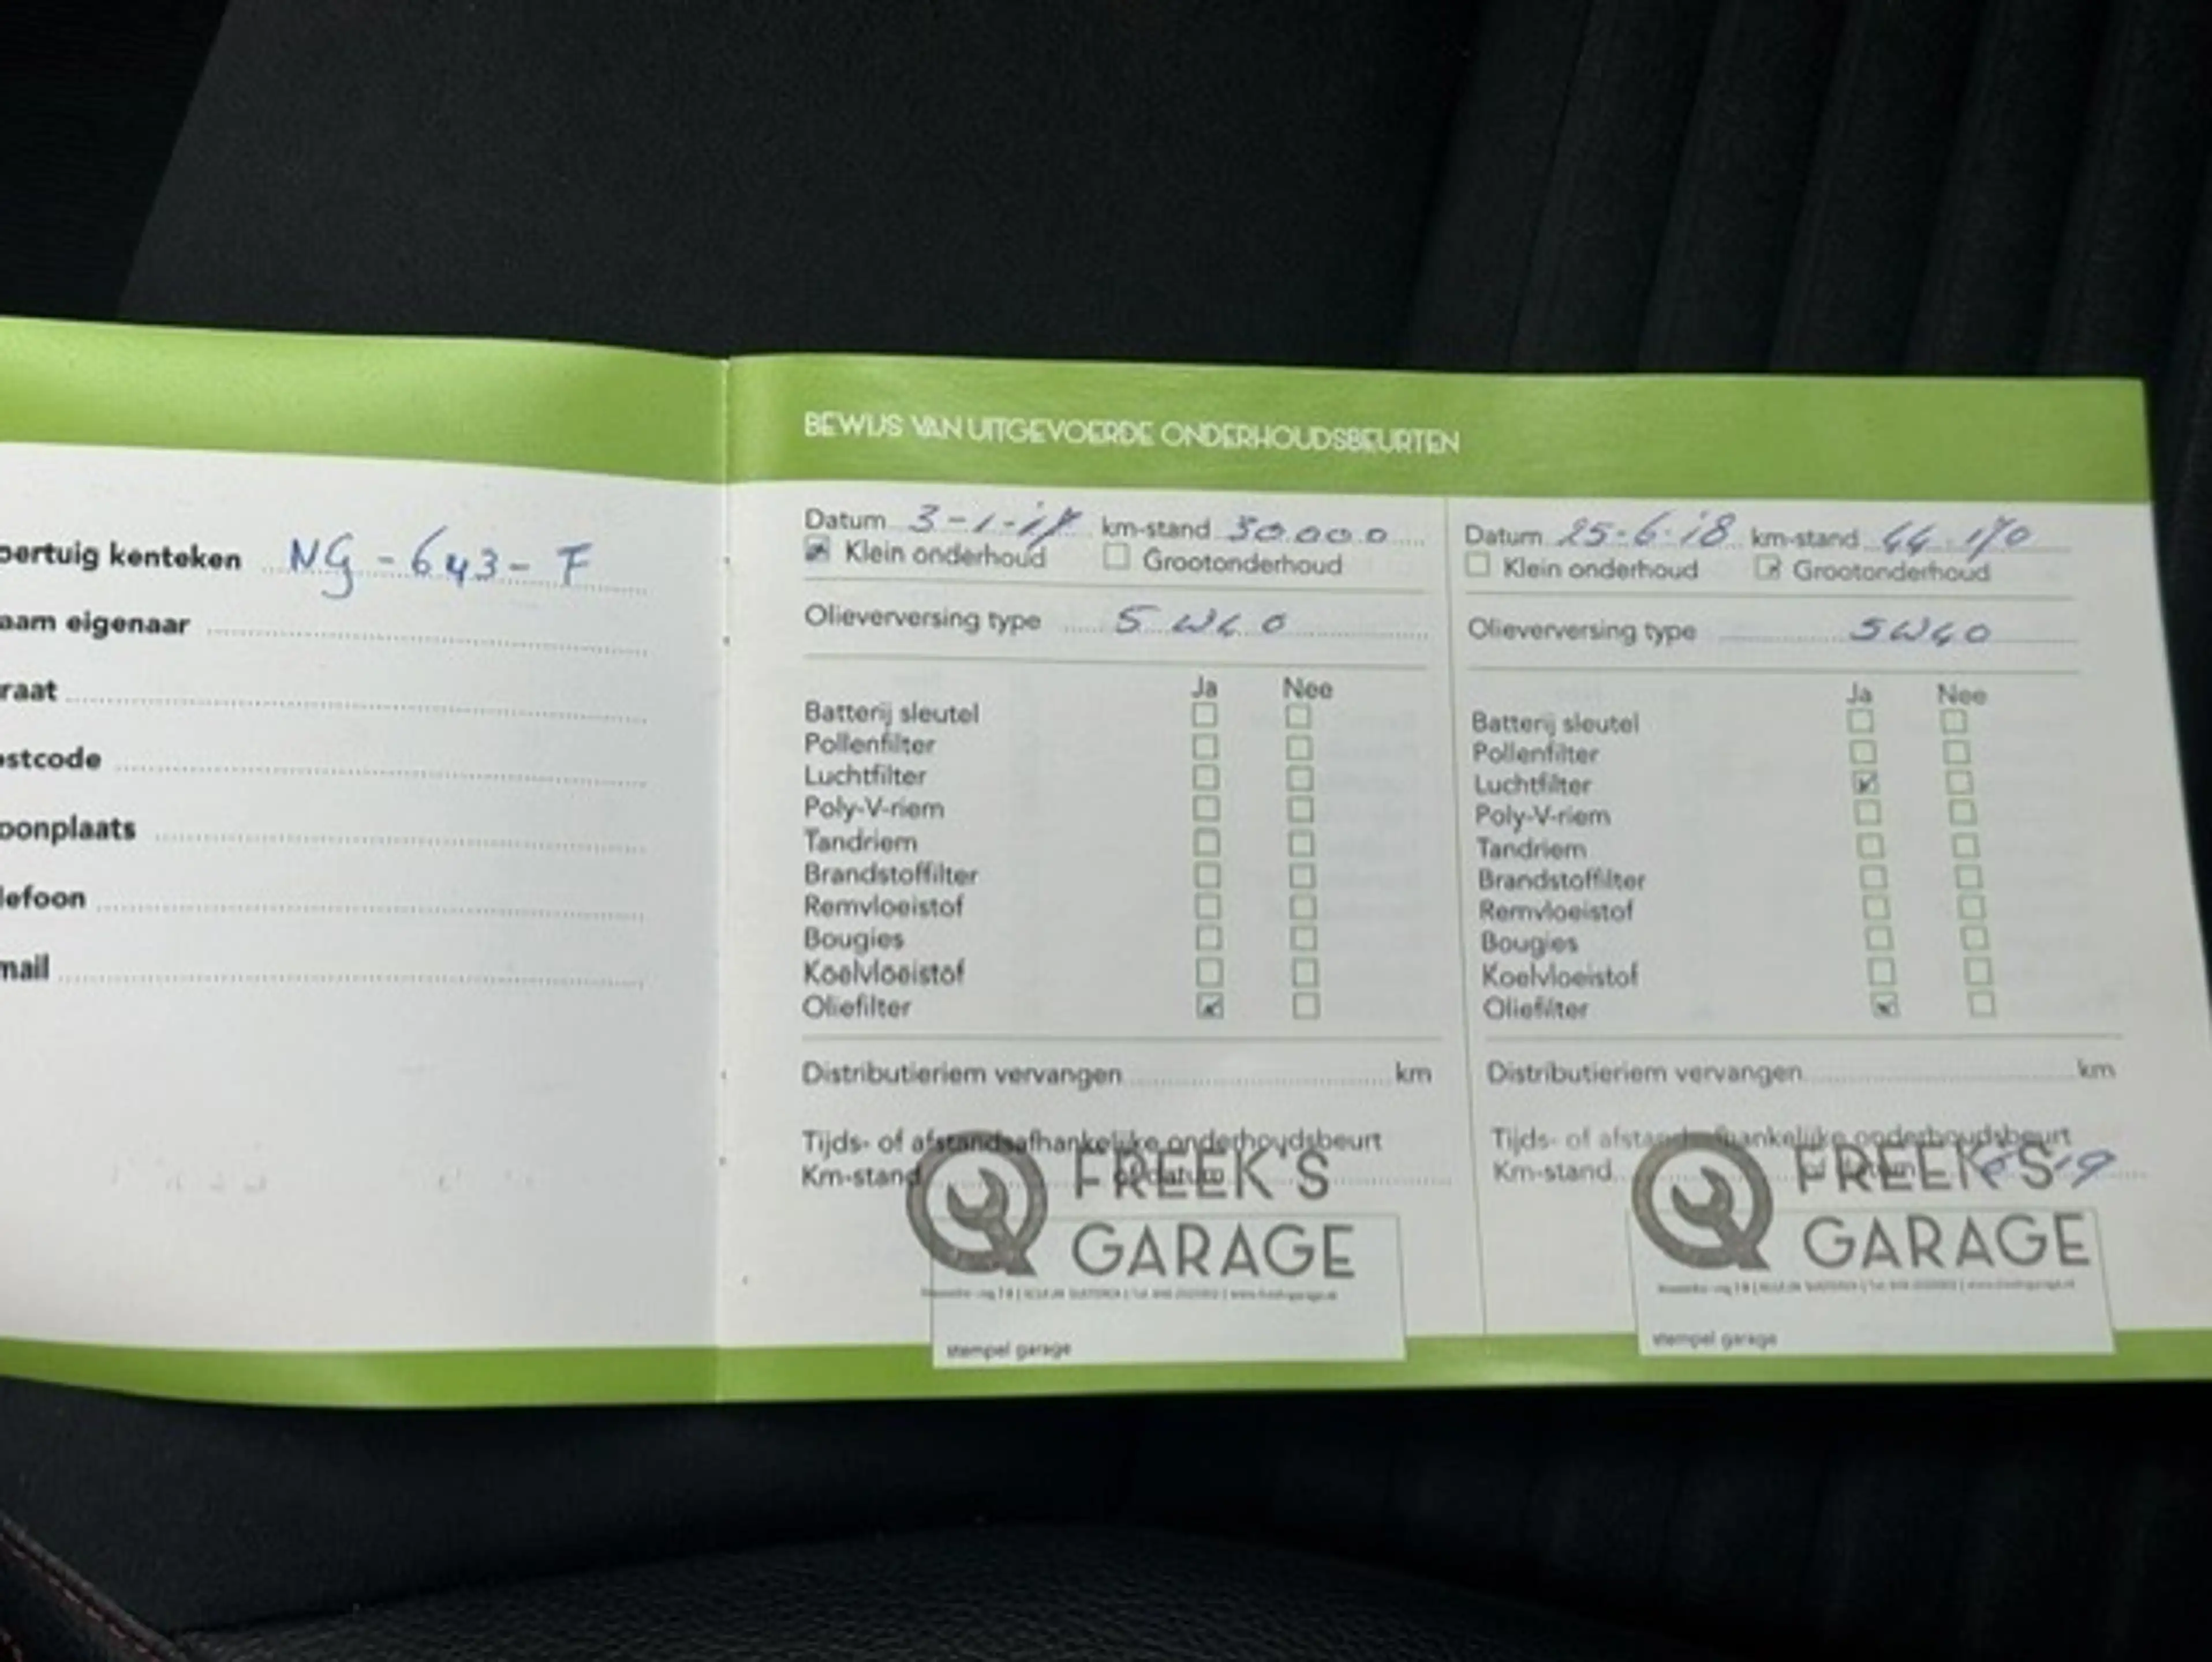 oertuig kenteken NG-643-F
aam eigenaar
raat
ostcode
oonplaats
lefoon
mail
BEWIJS VAN UITGEVOERDE ONDERHOUDSBEURTEN
Datum 3-1-17 km-stand 30.000
Klein onderhoud Grootonderhoud
Olieverversing type 5W40
Ja Nee
Batterij sleutel
Pollenfilter
Luchtfilter
Poly-V-riem
Tandriem
Brandstoffilter
Remvloeistof
Bougies
Koelvloeistof
Oliefilter
Distributieriem vervangen km
Tijds- of afstandsafhankelijke onderhoudsbeurt
Km-stand of datum
FREEK'S
GARAGE
stempel garage
Datum 25-6-18 km-stand 44.170
Klein onderhoud Grootonderhoud
Olieverversing type 5W40
Ja Nee
Batterij sleutel
Pollenfilter
Luchtfilter
Poly-V-riem
Tandriem
Brandstoffilter
Remvloeistof
Bougies
Koelvloeistof
Oliefilter
Distributieriem vervangen km
Tijds- of afstandsafhankelijke onderhoudsbeurt
Km-stand of datum
FREEK'S
GARAGE
stempel garage